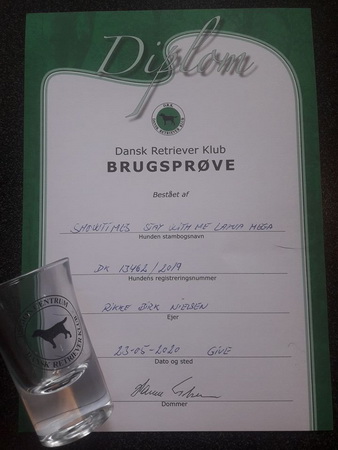 Diplom
DRK
Dansk Retriever Klub
BRUGSPRØVE
Bestået af
SHOWTIMES STAY WITH ME LAMOR MEGA
Hunden stambogsnavn
DK 13462/2019
Hundens registreringsnummer
RIKKE BIRK NIELSEN
Ejer
23-05-2020 GIVE
Dato og sted
Dommer
CENTRUM
DANSK RETRIEVER KLUB